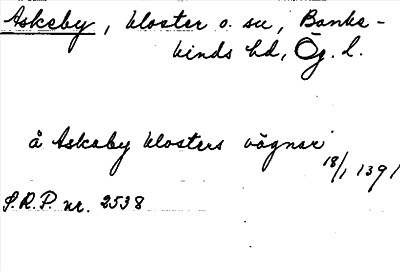 Askeby, kloster o. sn, Banke-
kinds hd, Ög. l.
å Askaby klosters vägnar
18/1 1391
S.R.P. nr. 2538